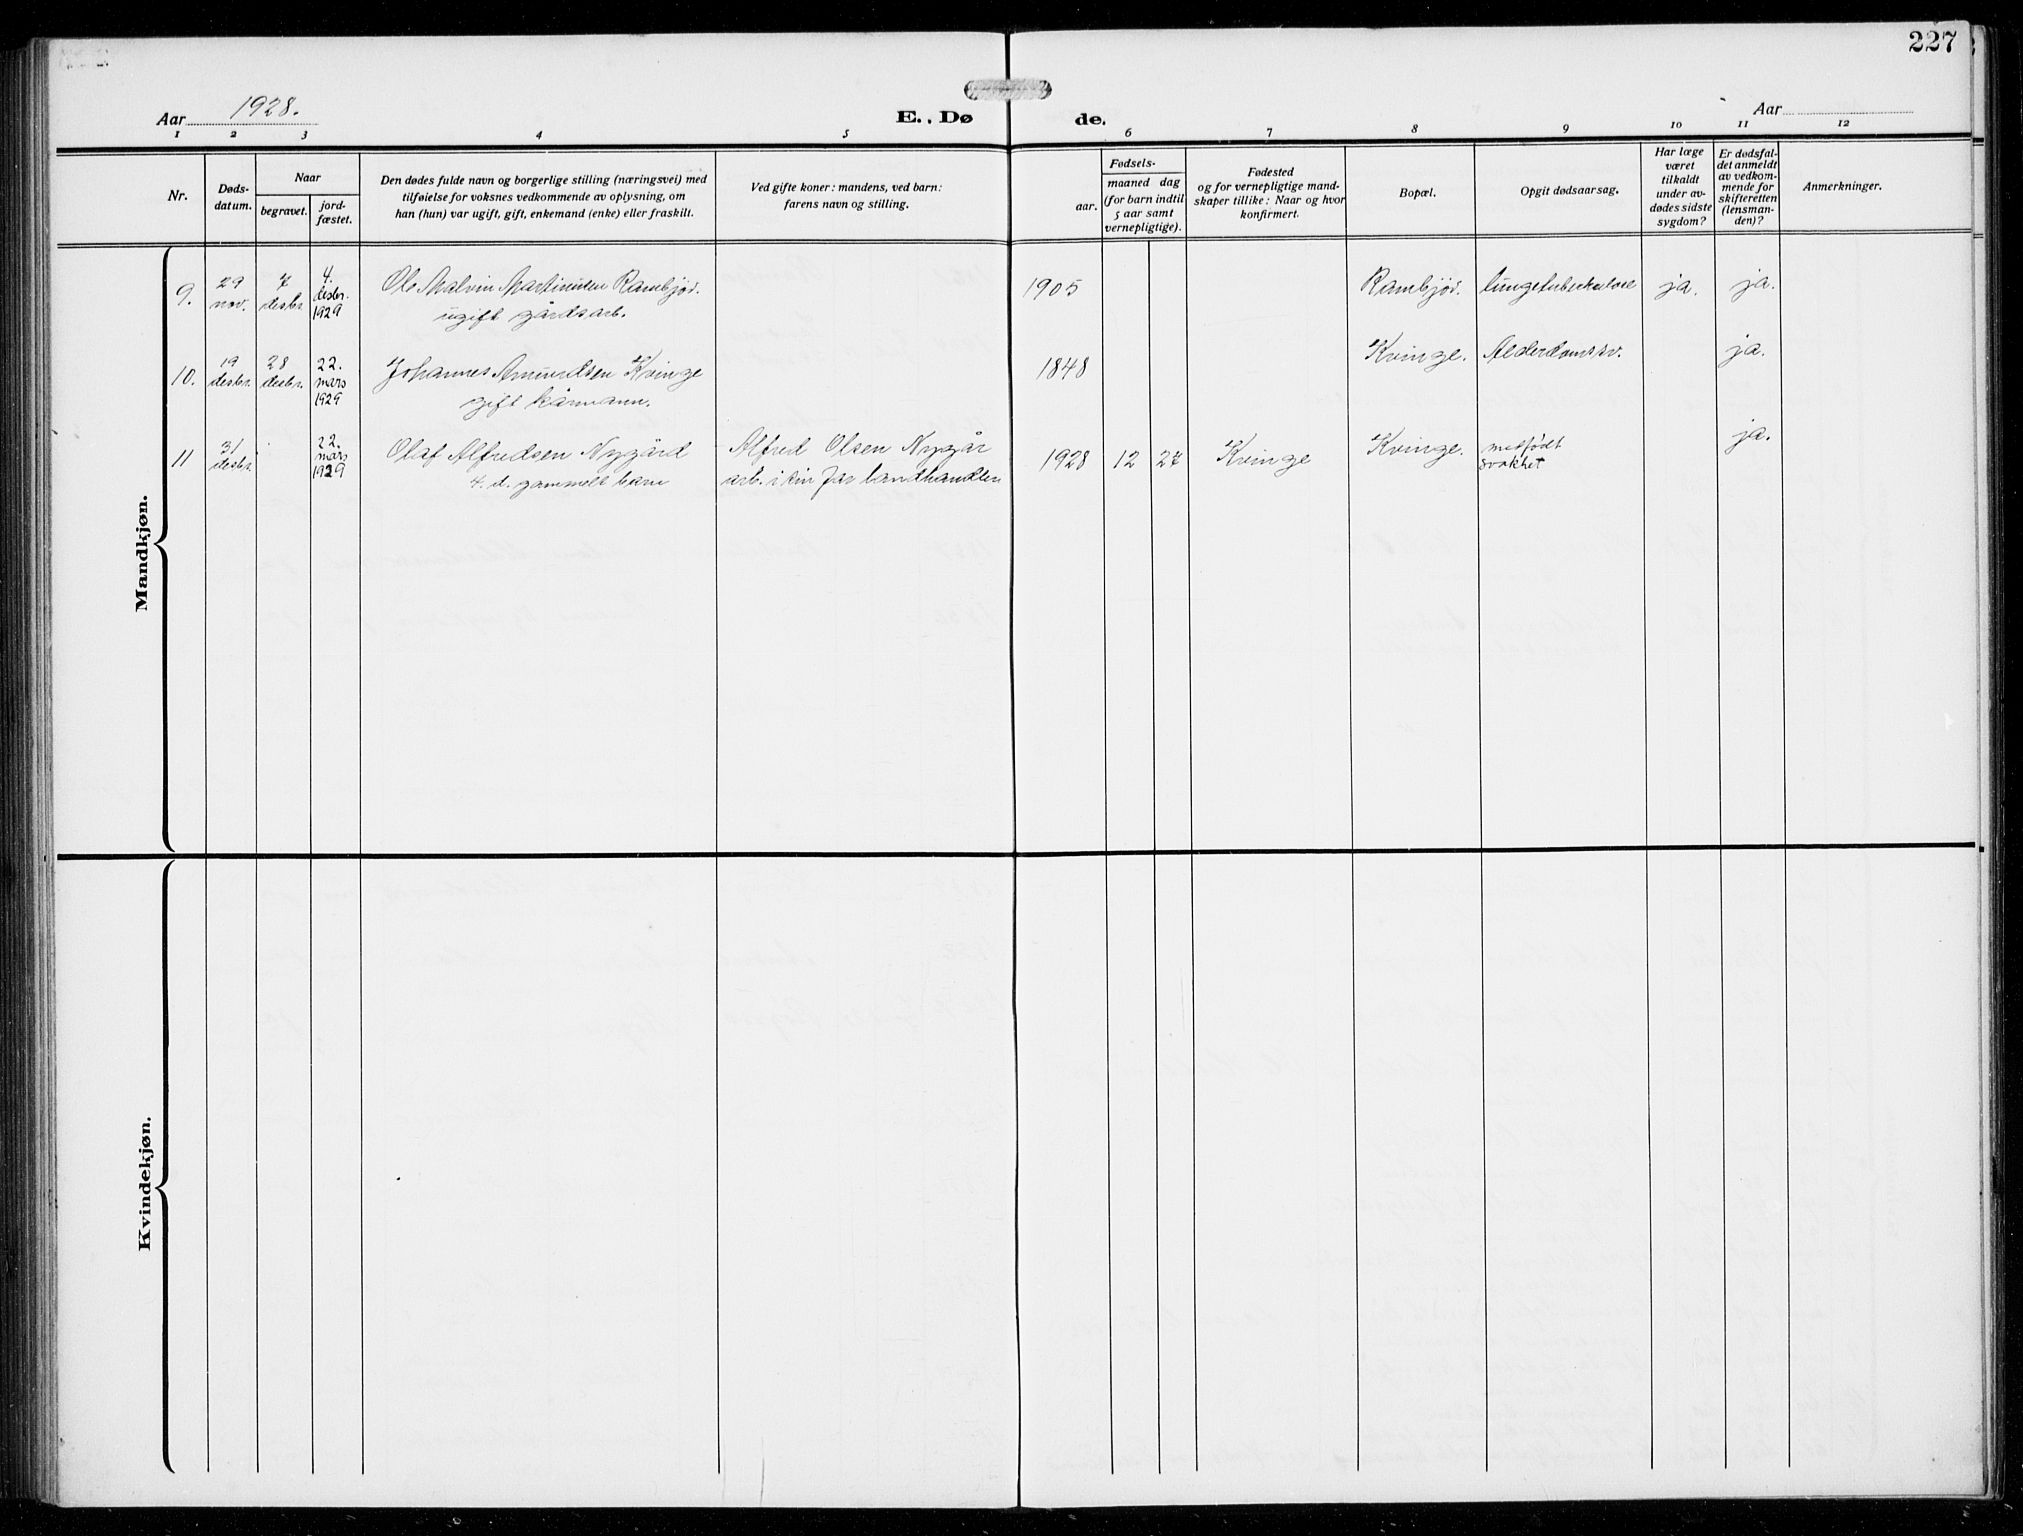 227
Aar 1928.
E. Døde.
Aar
1 2 3 4 5 6 7 8 9 10 11 12
Nr.
Døds-
datum.
Naar
begravet.
jord-
fæstet.
Den dødes fulde navn og borgerlige stilling (næringsvei) med
tilføielse for voksnes vedkommende av oplysning, om
han (hun) var ugift, gift, enkemand (enke) eller fraskilt.
Ved gifte koner: mandens, ved barn:
farens navn og stilling.
Fødsels-
aar.
maaned dag
(for barn indtil
5 aar samt
vernepligtige).
Fødested
og for vernepligtige mand-
skaper tillike: Naar og hvor
konfirmert.
Bopæl.
Opgit dødsaarsag.
Har læge
været
tilkaldt
under av-
dødes sidste
sygdom?
Er dødsfal-
det anmeldt
av vedkom-
mende for
skifteretten
(lensman-
den)?
Anmerkninger.
Mandkjøn.
9. 29 nov. 7 desbr. 4. desbr. 1929 Ole Malvin Martinusen Rambjør. 1905 Rambjør. lungetuberkulose ja. ja.
ugift gårdsarb.
10. 19 desbr. 28 desbr. 22. mars 1929 Johannes Amundsen Kvinge 1848 Kvinge. Alderdomssv. ja.
gift kårmann.
11 31 desbr. 22. mars 1929 Olaf Alfredsen Nygård Alfred Olsen Nygår 1928 12 27 Kvinge Kvinge. medfødt svakhet ja.
4. d. gammelt barn arb. i landhandlen
Kvindekjøn.